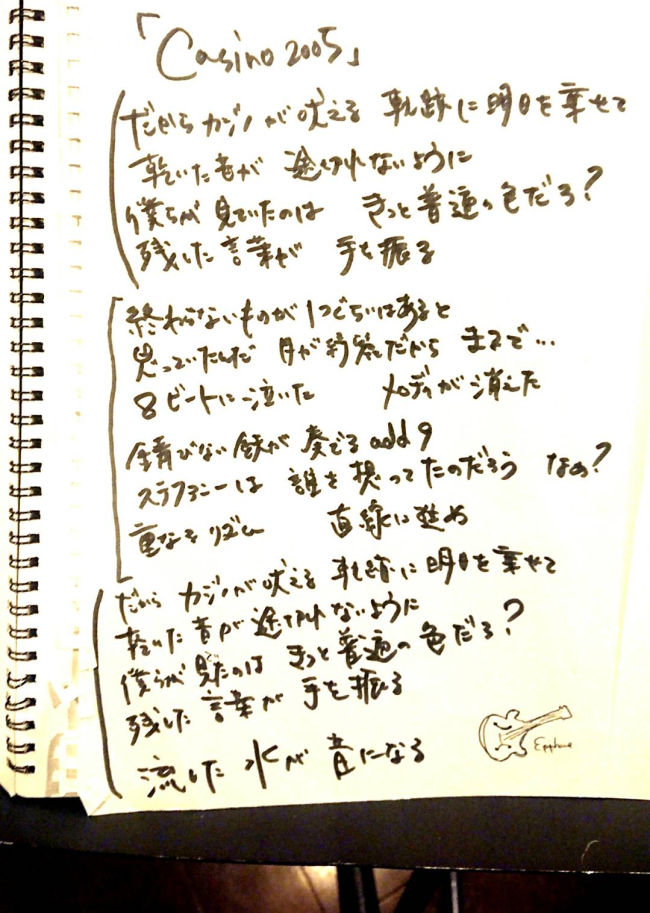 「Casino 2005」
だから カジノが吠える 軌跡に明日を乗せて
乾いた音が 途切れないように
僕らが見ていたのは きっと普通の色だろ?
残した言葉が 手を振る
終わらないものが1つぐらいはあると
思っていたんだ 目が だから まるで…
8ビートに泣いた メロディが消えた
錆びない鉄が 奏でる add9
ステファニーは 誰を想ってたのだろう なぁ?
重なるリズム 直線に進め
だから カジノが吠える 軌跡に明日を乗せて
乾いた音が途切れないように
僕らが見たのは きっと普通の色だろ?
残した言葉が 手を振る
流した水が音になる
Epiphone